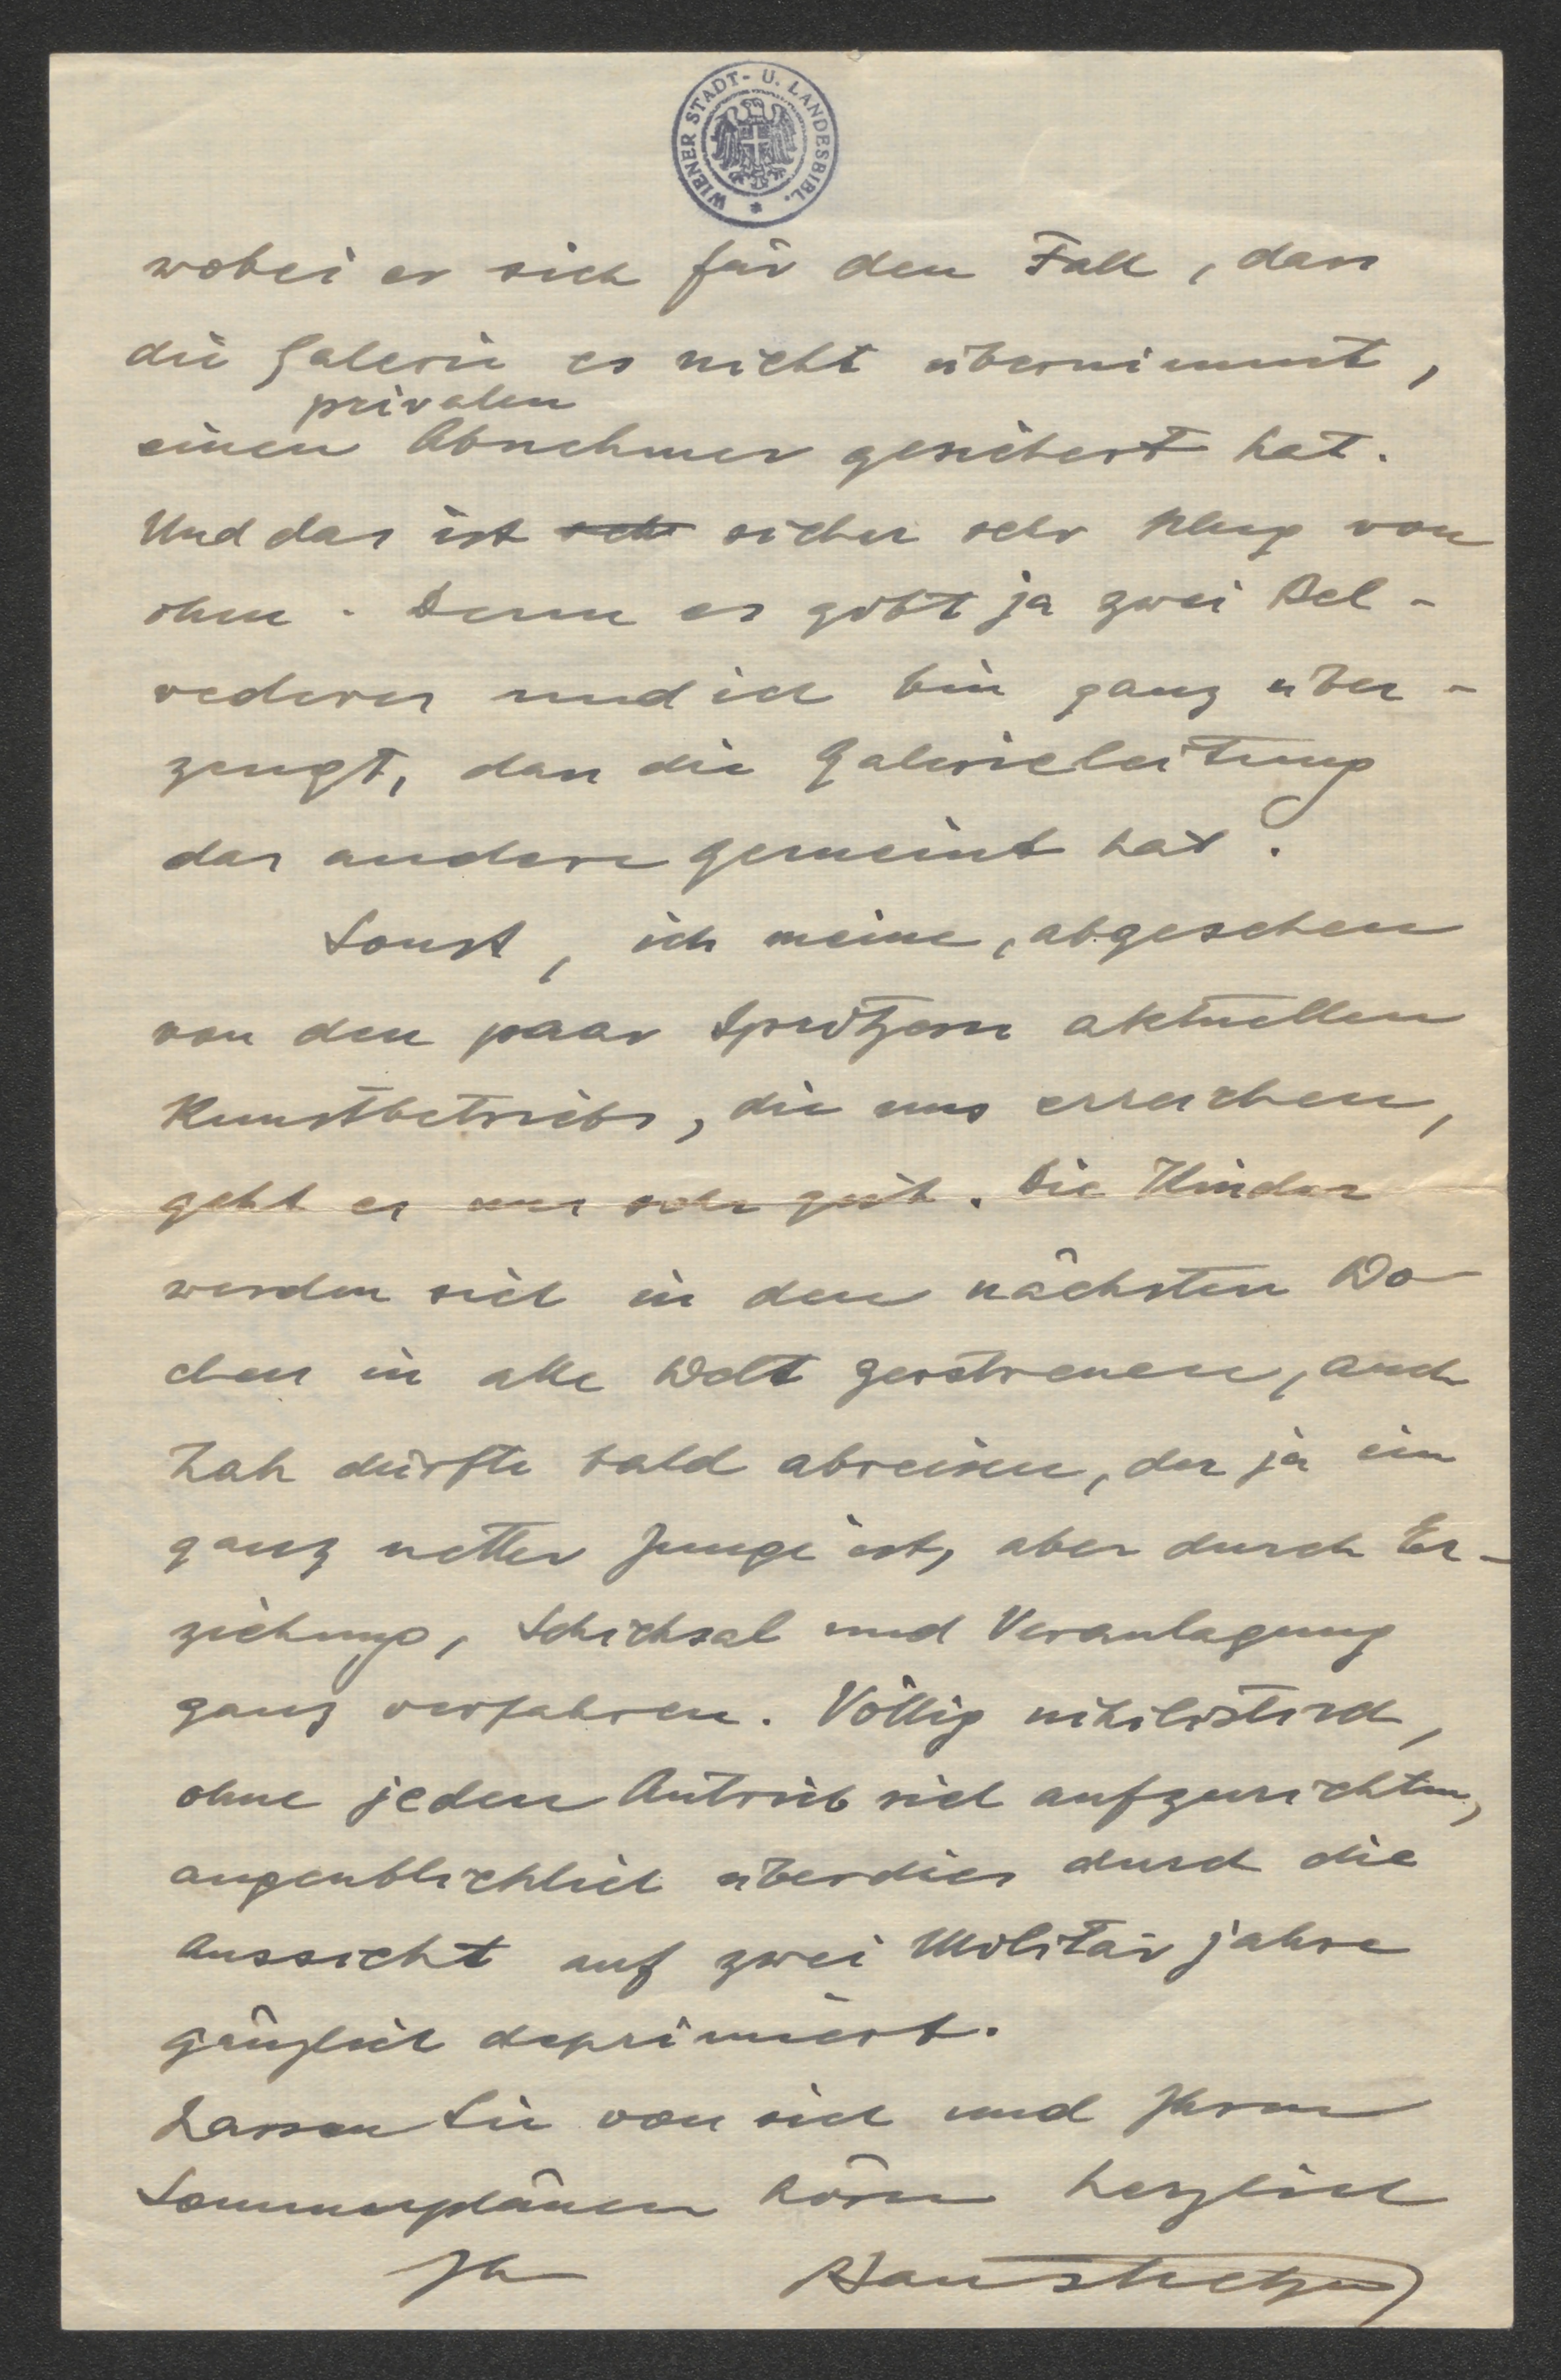 WIENER STADT- U. LANDESBIBL.
wobei er sich für den Fall, dass
die Galerie es nicht übernimmt,
privaten
einen Abnehmer gesichert hat.
Und das ist seh sicher sehr klug von
ihm. Denn es gibt ja zwei Bel-
vederes und ich bin ganz über-
zeugt, dass die Galerieleitung
das andere gemeint hat.
Sonst, ich meine, abgesehen
von den paar Spritzern aktuellen
Kunstbetriebs, die uns erreichen,
geht es uns sehr gut. Die Kinder
werden sich in den nächsten Wo
chen in alle Welt zerstreuen, auch
dürfte bald abreisen, der ja ein
ganz netter Junge ist, aber durch Er-
ziehung, Schicksal und Veranlagung
ganz verfahren. Völlig nihilistisch,
ohne jeden Antrieb sich aufzurichten,
augenblicklich überdies durch die
Aussicht auf zwei Militärjahre
gänzlich deprimiert.
Lassen Sie von sich und Ihren
Sommerplänen hören herzlich
Ihr Hans Tietze